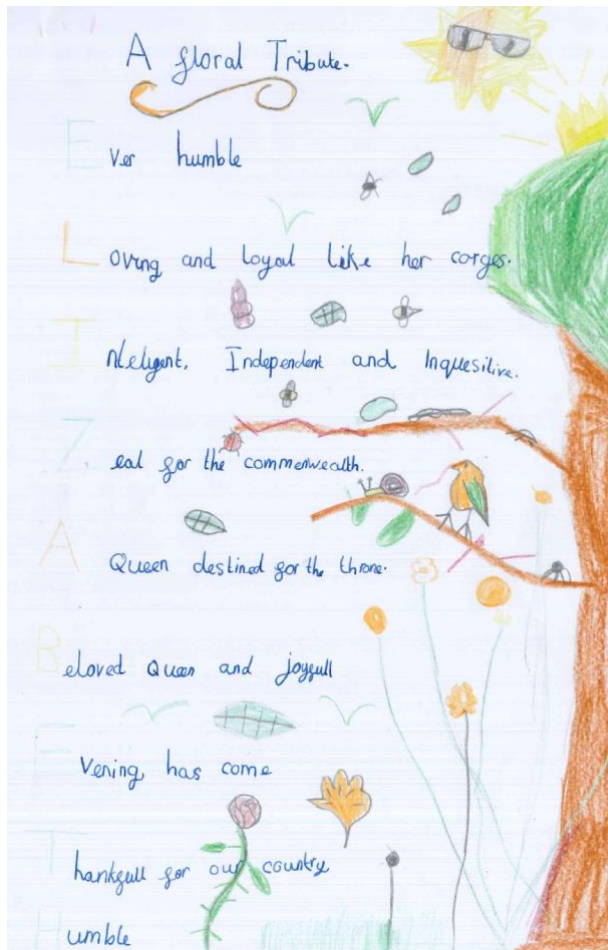 A floral Tribute.
Ever humble
Loving and Loyal like her corges.
Inteligent, Independent and Inquesitive.
Zeal for the commenwealth.
A Queen destined for the throne.
Beloved Queen and joyfull
Evening has come
Thankfull for our country
Humble